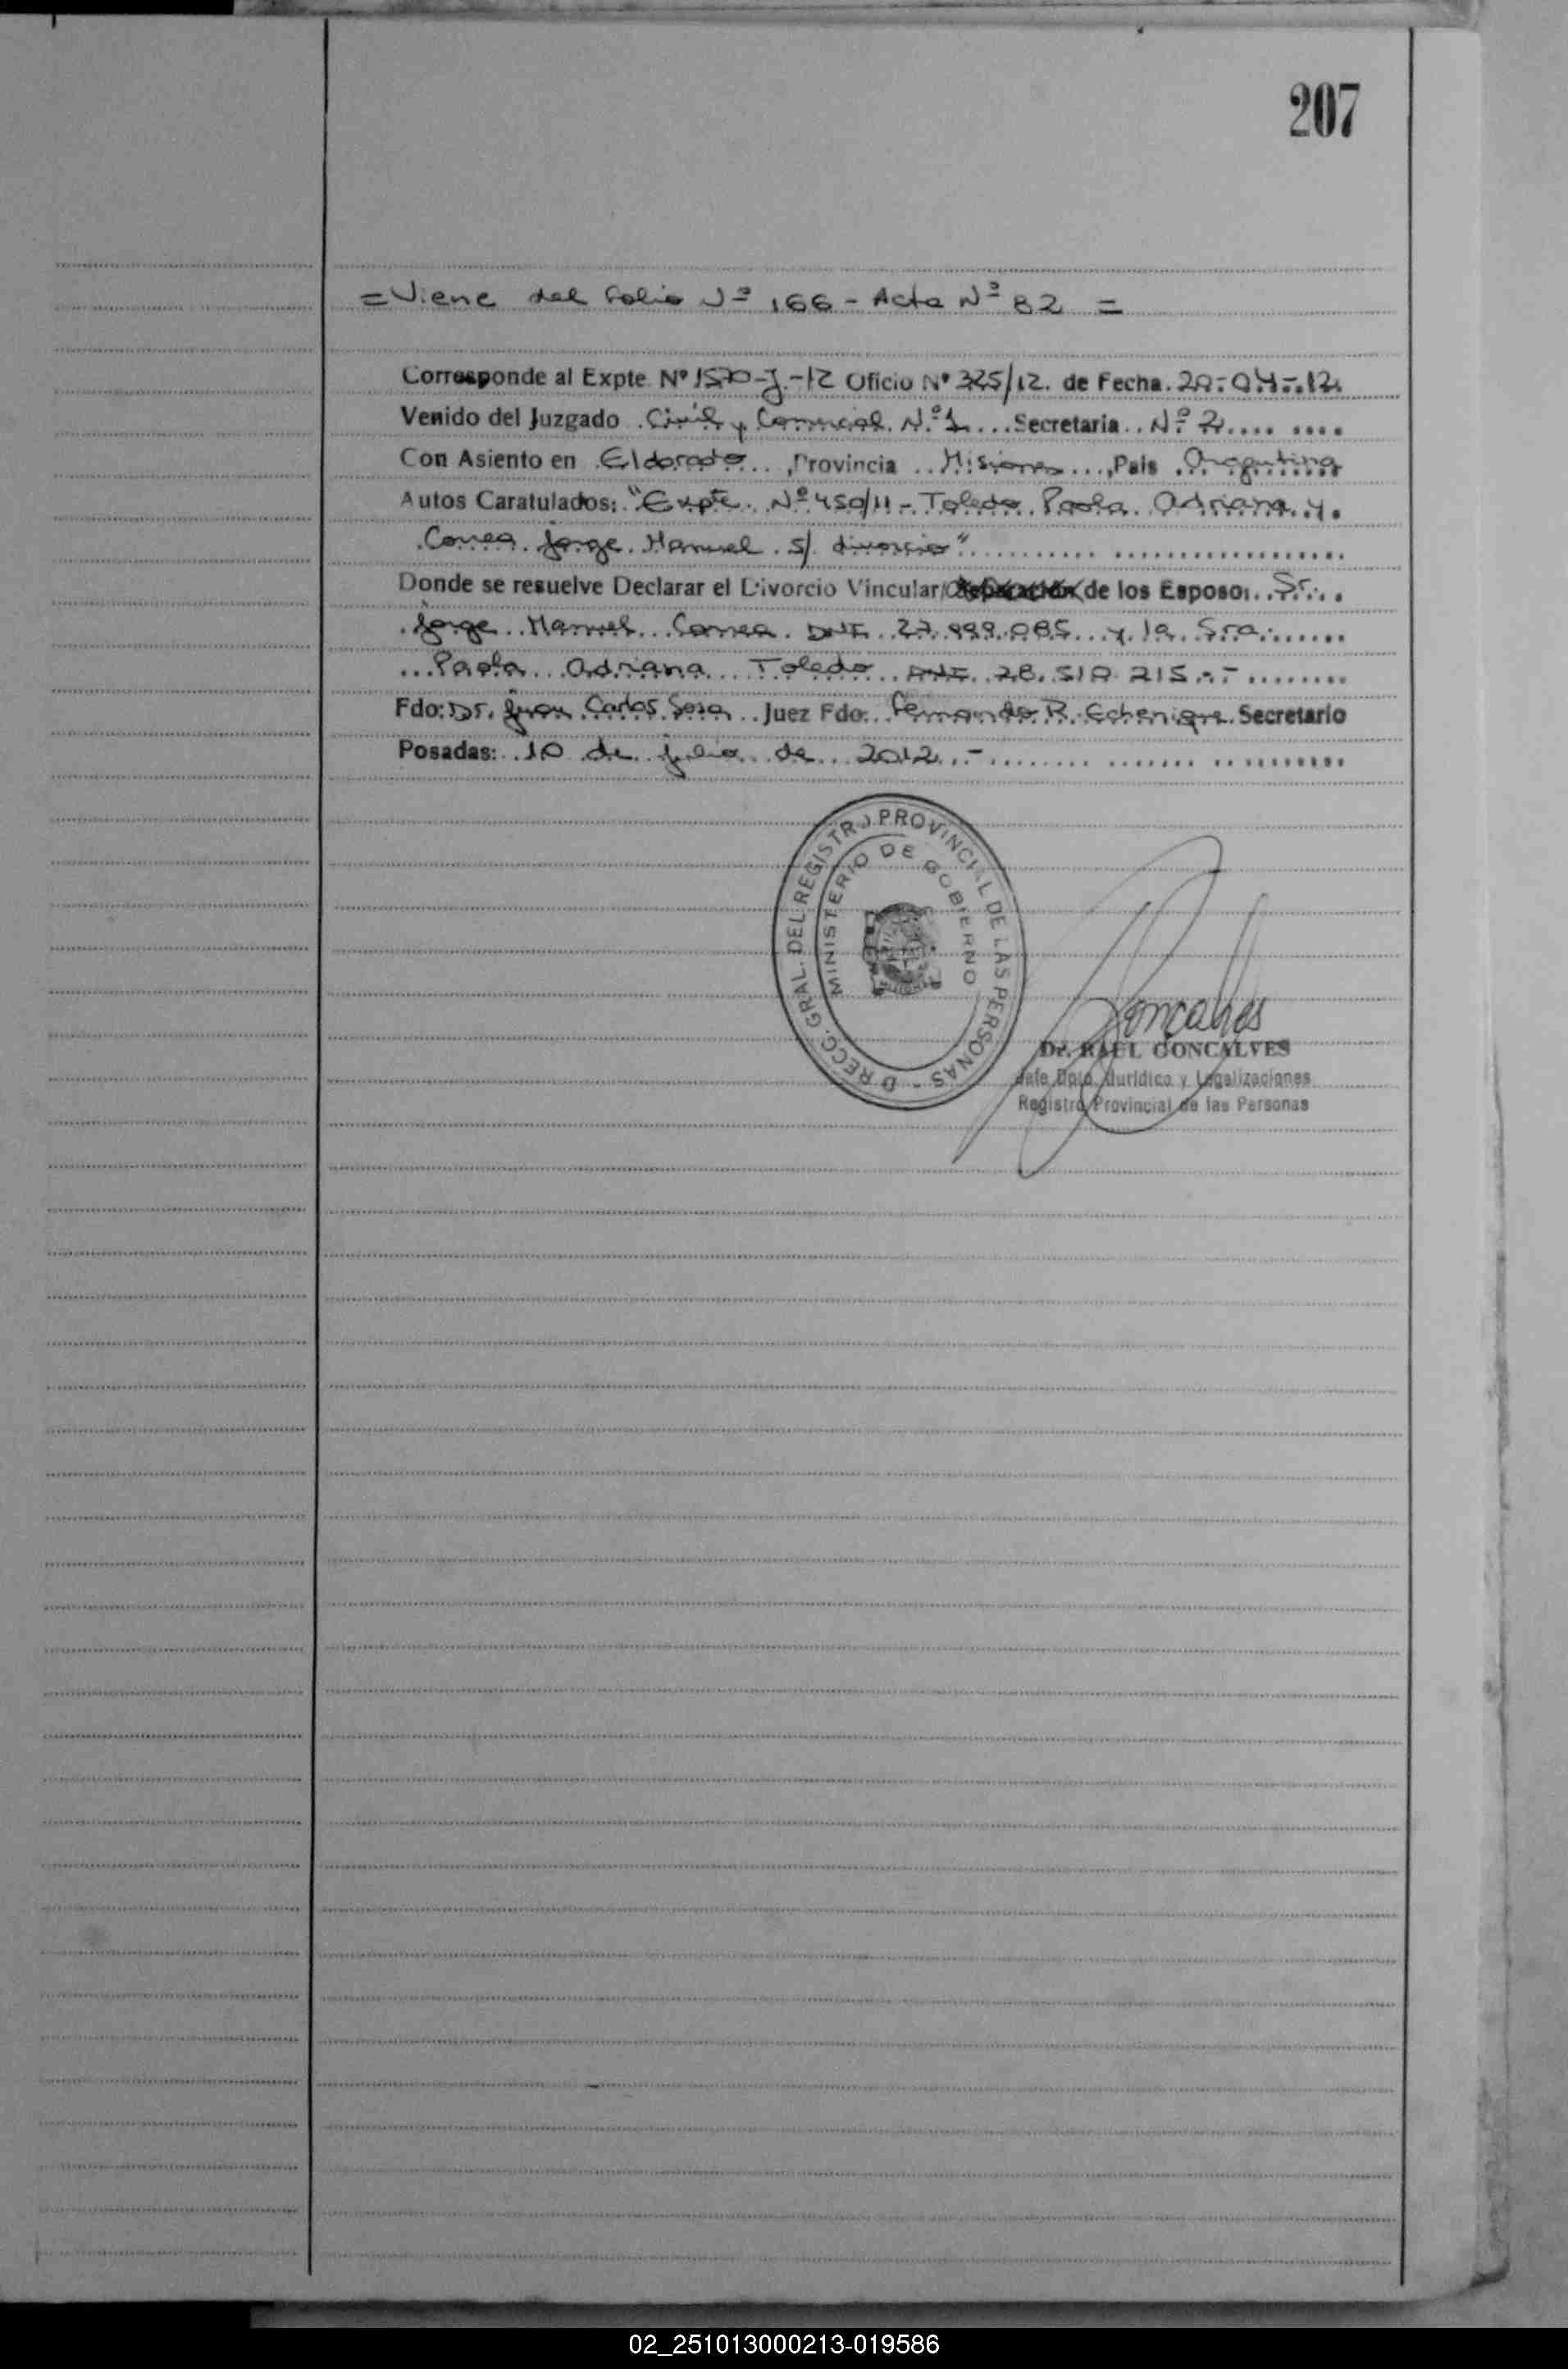 207
= Viene del folio Nº 166 - Acta Nº 82 =
Corresponde al Expte. Nº 1570-J-12 Oficio Nº 325/12. de Fecha. 20-04-12.
Venido del Juzgado Civil y Comercial Nº 1 Secretaria Nº 2
Con Asiento en Eldorado, Provincia Misiones, Pais Argentina
Autos Caratulados: "Expte. Nº 450/11 - Toledo Paola Adriana y
Correa Jorge Manuel s/ divorcio"
Donde se resuelve Declarar el Divorcio Vincular/ Separación de los Esposos Sr.
Jorge Manuel Correa DNI 27.999.085 y la Sra.
Paola Adriana Toledo DNI 28.510.215.-
Fdo: Dr. Juan Carlos Sosa Juez Fdo. Fernando R. Echenique Secretario
Posadas: 10 de julio de 2012.-
DIRECC. GRAL. DEL REGISTRO PROVINCIAL DE LAS PERSONAS -
MINISTERIO DE GOBIERNO
Goncalves
Dr. RAUL GONCALVES
Jefe Dpto. Jurídico y Legalizaciones
Registro Provincial de las Personas
02_251013000213-019586